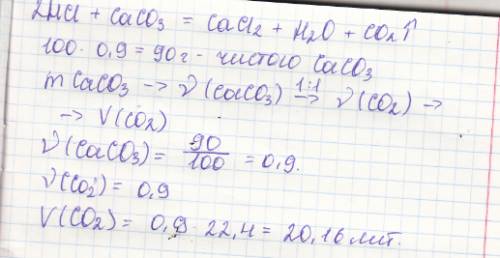 2HCl + CaCO₃ = CaCl₂ + H₂O + CO₂↑
100 · 0,9 = 90 г - чистого CaCO₃
m CaCO₃ → ν (CaCO₃) 1:1→ ν (CO₂) →
→ V(CO₂)
ν (CaCO₃) = 90/100 = 0,9.
ν(CO₂) = 0,9
V(CO₂) = 0,9 · 22,4 = 20,16 лит.